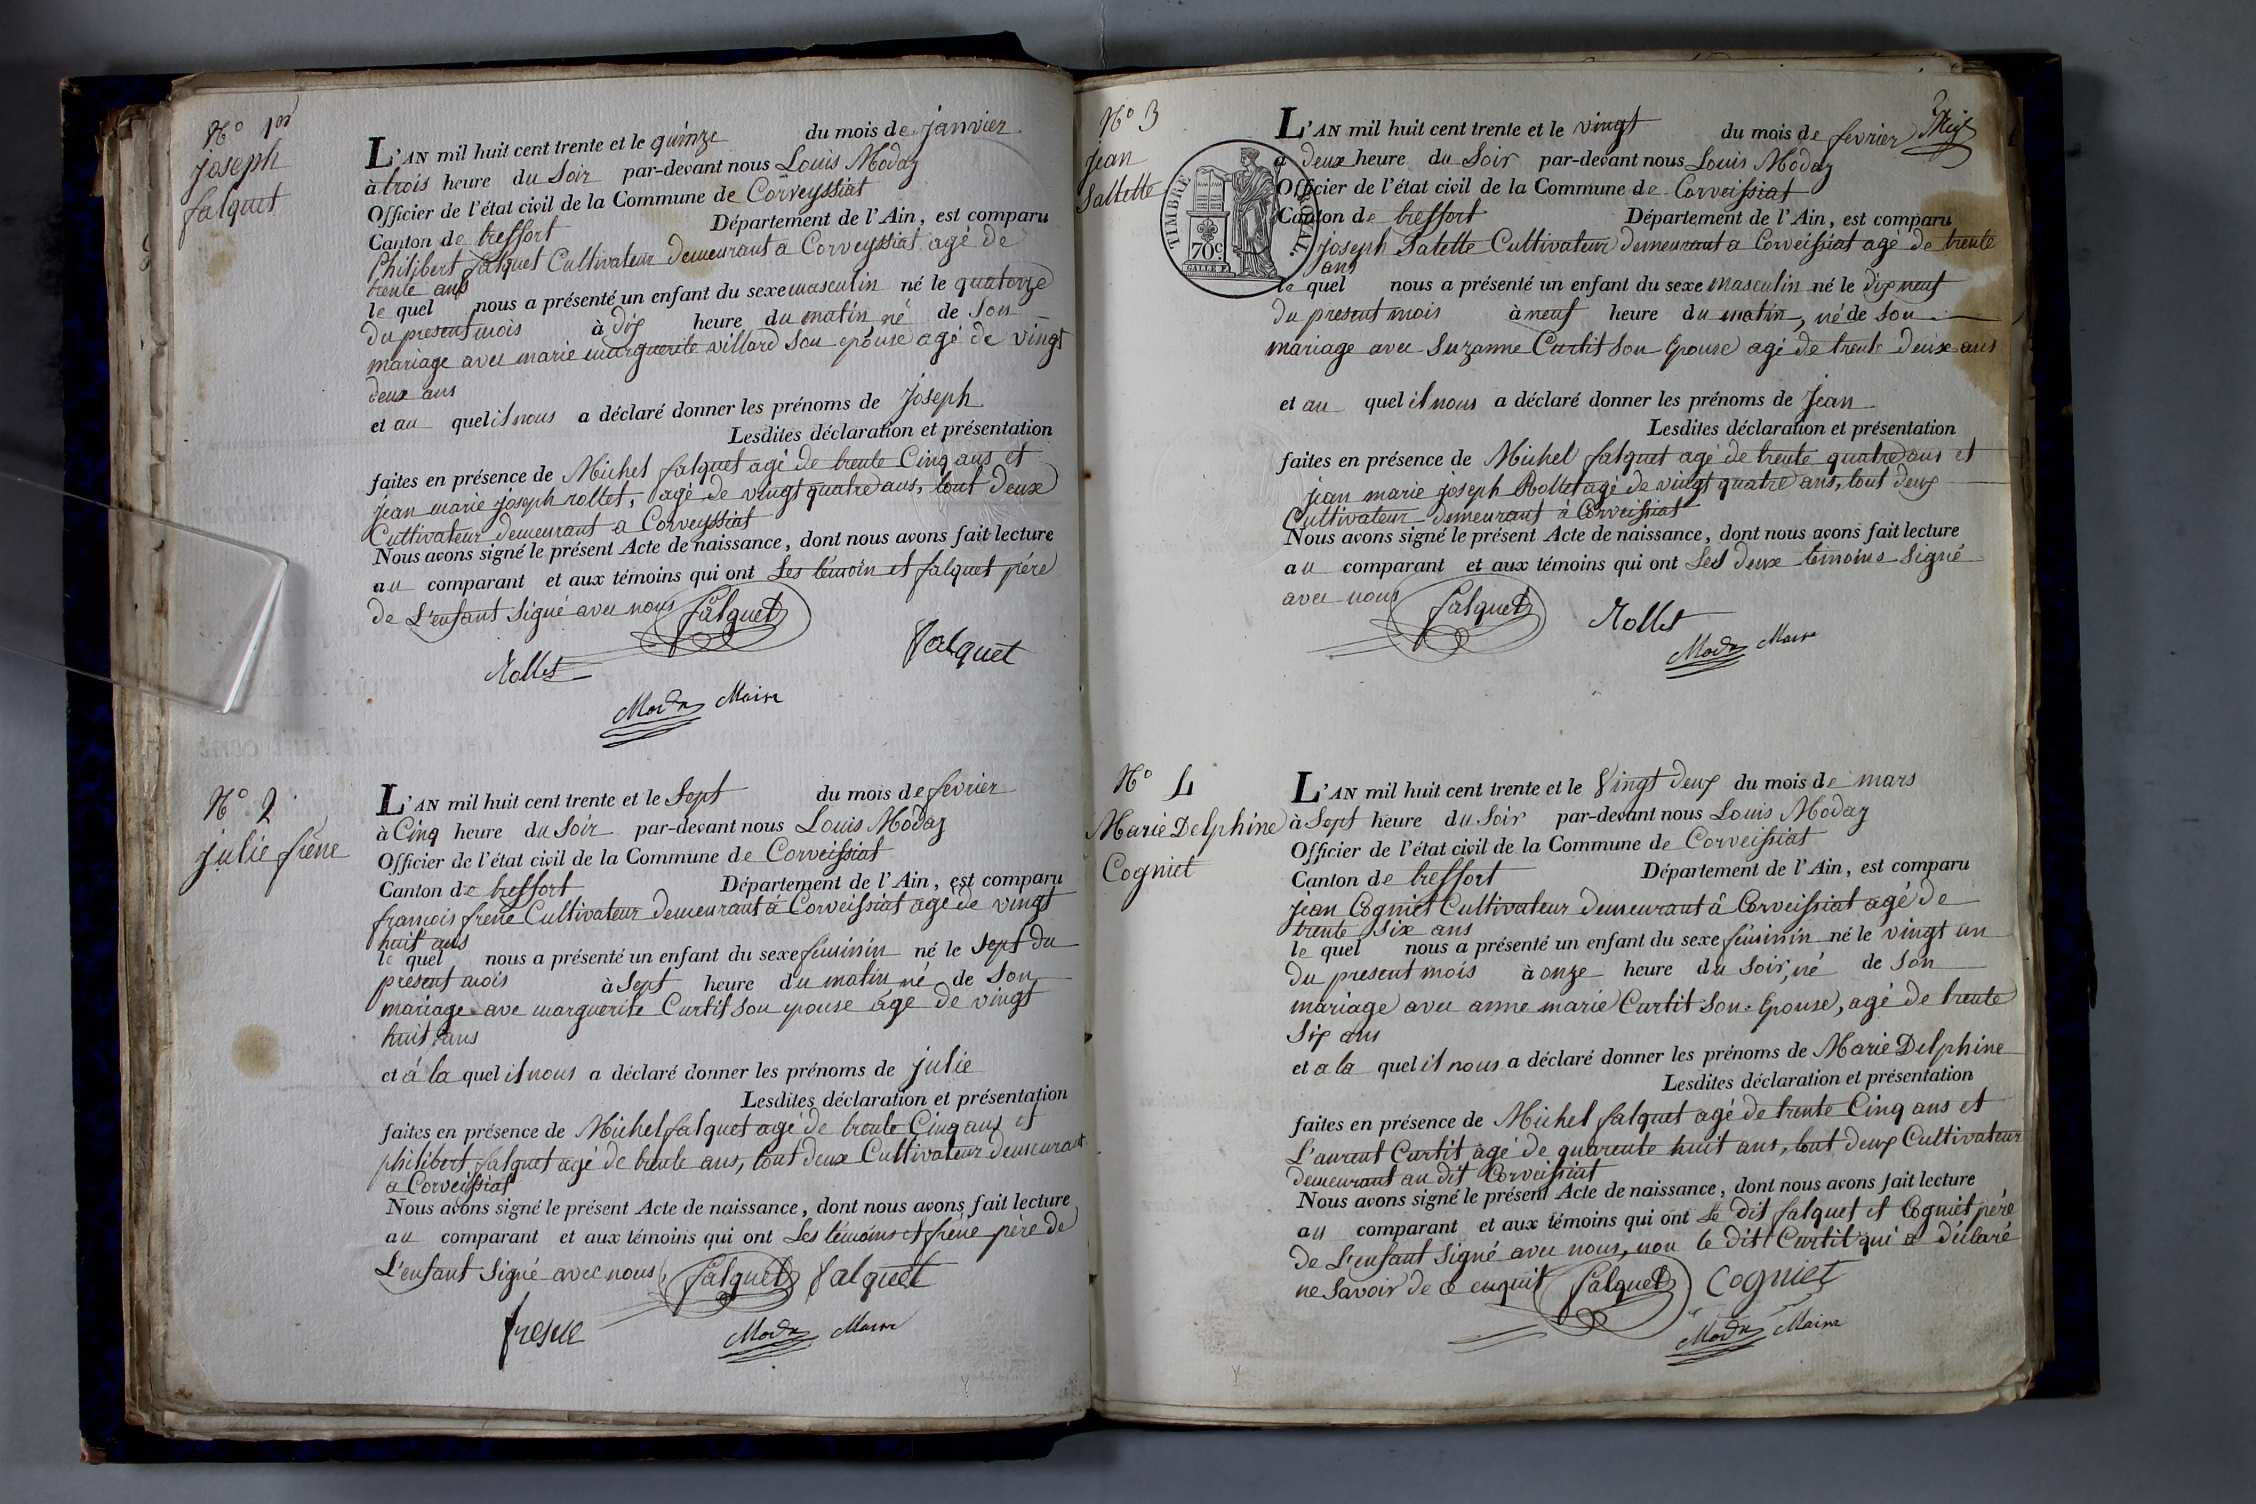 N.º 1er
Joseph
falquet
L'AN mil huit cent trente et le quinze du mois de janvier
à trois heure du Soir par-devant nous Louis Moday
Officier de l'état civil de la Commune de Corveyssiat
Canton de treffort Département de l'Ain, est comparu
Philibert falquet Cultivateur demeurant a Corveyssiat agé de
trente ans
le quel nous a présenté un enfant du sexe masculin né le quatorze
du present mois à dix heure du matin né de Son
mariage avec marie marguerite villard Son epouse agé de vingt
deux ans
et au quel il nous a déclaré donner les prénoms de Joseph
Lesdites déclaration et présentation
faites en présence de Michel falquet agé de trente Cinq ans et
jean marie joseph rollet, agé de vingt quatre ans, tout deux
Cultivateur demeurant a Corveyssiat
Nous avons signé le présent Acte de naissance, dont nous avons fait lecture
au comparant et aux témoins qui ont Les témoin et falquet père
de L'enfant Signé avec nous falquet
falquet
Rollet
Moday Maire
N.º 2
julie frene
L'AN mil huit cent trente et le Sept du mois de fevrier
à Cinq heure du Soir par-devant nous Louis Moday
Officier de l'état civil de la Commune de Corveissiat
Canton de treffort Département de l'Ain, est comparu
francois frene Cultivateur demeurant à Corveissiat agé de vingt
huit ans
le quel nous a présenté un enfant du sexe féminin né le Sept du
présent mois à Sept heure du matin né de Son
mariage ave marguerite Curtit Son epouse agé de vingt
huit ans
et à la quel il nous a déclaré donner les prénoms de julie
Lesdites déclaration et présentation
faites en présence de Michel falquet agé de trente Cinq ans et
philibert falquet agé de trente ans, tout deux Cultivateur demeurant
a Corveissiat
Nous avons signé le présent Acte de naissance, dont nous avons fait lecture
au comparant et aux témoins qui ont Les témoins et frène père de
L'enfant Signé avec nous falquet falquet
fresne
Moday Maire
N.º 3
jean
Saltelle
TIMBRE ROYAL.
70c.
L'AN mil huit cent trente et le vingt du mois de fevrier
a deux heure du Soir par-devant nous Louis Moday
Officier de l'état civil de la Commune de Corveissiat
Canton de treffort Département de l'Ain, est comparu
joseph Satelle Cultivateur demeurant a Corveissiat agé de trente
ans
le quel nous a présenté un enfant du sexe masculin né le dix neuf
du present mois à neuf heure du matin, né de Son
mariage avec Suzanne Curtit Son Epouse agé de trente deux ans
et au quel il nous a déclaré donner les prénoms de Jean
Lesdites déclaration et présentation
faites en présence de Michel falquet agé de trente quatre ans et
jean marie joseph Rollet agé de vingt quatre ans, tout deux
Cultivateur demeurant à Corveissiat
Nous avons signé le présent Acte de naissance, dont nous avons fait lecture
au comparant et aux témoins qui ont Les deux témoins Signé
avec nous falquet Rollet
Moday Maire
N.º 4
Marie Delphine
Cogniet
L'AN mil huit cent trente et le Vingt deux du mois de mars
à Sept heure du Soir par-devant nous Louis Moday
Officier de l'état civil de la Commune de Corveissiat
Canton de treffort Département de l'Ain, est comparu
jean Cogniet Cultivateur demeurant â Corveissiat agé de
trente Six ans
le quel nous a présenté un enfant du sexe féminin né le vingt un
du present mois à onze heure du Soir, né de Son
mariage avec anne marie Curtit Son Epouse, agé de trente
Six ans
et a la quel il nous a déclaré donner les prénoms de Marie Delphine
Lesdites déclaration et présentation
faites en présence de Michel falquet agé de trente Cinq ans et
L'aurent Curtit agé de quarente huit ans, tout deux Cultivateur
demeurant au dit Corveissiat
Nous avons signé le présent Acte de naissance, dont nous avons fait lecture
au comparant et aux témoins qui ont Le dit falquet et Cogniet père
de L'enfant Signé avec nous, non le dit Curtit qui a déclaré
ne Savoir de ce enquit falquet Cogniet
Moday Maire